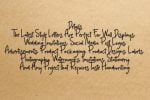 Details
The Latest Style Letters Are Perfect For Wall Displays
Wedding Invitations, Social Media Post, Logos
Advertisements, Product Packaging, Product Designs, Labels
Photography, Watermarks, Invitations, Stationery
And Any Project that Requires taste Handwriting